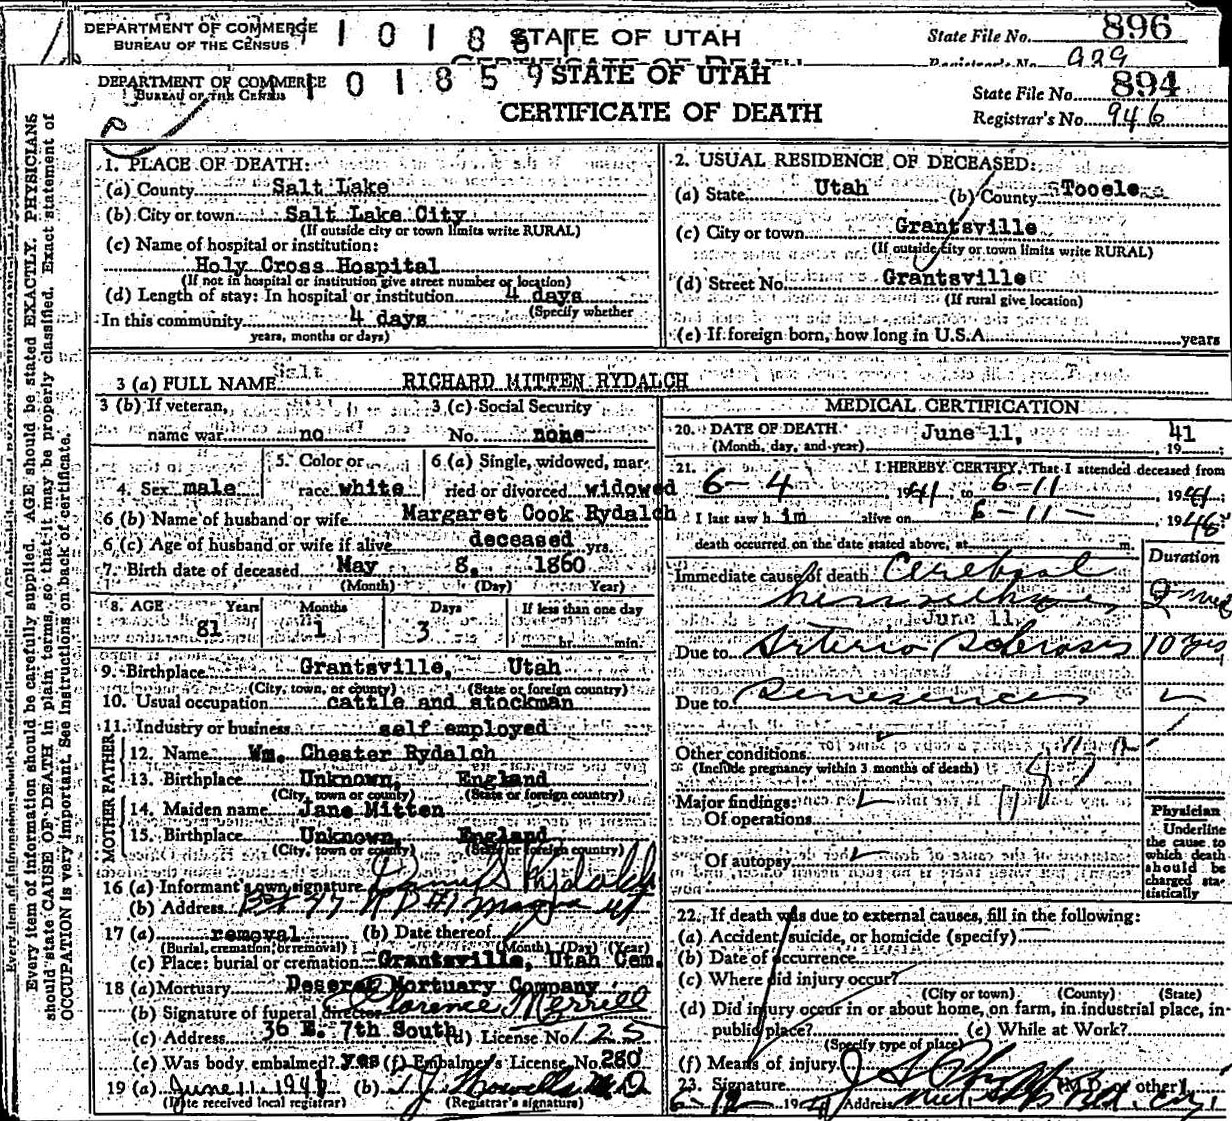 DEPARTMENT OF COMMERCE
BUREAU OF THE CENSUS
STATE OF UTAH
State File No. 896
Registrar's No. 929
DEPARTMENT OF COMMERCE
BUREAU OF THE CENSUS
101859
STATE OF UTAH
CERTIFICATE OF DEATH
State File No. 894
Registrar's No. 946
Every item of information should be carefully supplied. AGE should be stated EXACTLY. PHYSICIANS
should state CAUSE OF DEATH in plain terms, so that it may be properly classified. Exact statement of
OCCUPATION is very important. See instructions on back of certificate.
1. PLACE OF DEATH:
(a) County Salt Lake
(b) City or town Salt Lake City
(If outside city or town limits write RURAL)
(c) Name of hospital or institution:
Holy Cross Hospital
(If not in hospital or institution give street number or location)
(d) Length of stay: In hospital or institution 4 days
(Specify whether
In this community 4 days
years, months or days)
2. USUAL RESIDENCE OF DECEASED:
(a) State Utah (b) County Tooele
(c) City or town Grantsville
(If outside city or town limits write RURAL)
(d) Street No. Grantsville
(If rural give location)
(e) If foreign born, how long in U.S.A. years
3 (a) FULL NAME RICHARD MITTEN RYDALCH
3 (b) If veteran, 3 (c) Social Security
name war no No. none
4. Sex male 5. Color or race white 6 (a) Single, widowed, mar-
ried or divorced widowed
6 (b) Name of husband or wife Margaret Cook Rydalch
6 (c) Age of husband or wife if alive deceased yrs.
7. Birth date of deceased May 8, 1860
(Month) (Day) Year)
8. AGE Years Months Days If less than one day
81 1 3 hr. min.
9. Birthplace Grantsville, Utah
(City, town, or county) (State or foreign country)
10. Usual occupation cattle and stockman
11. Industry or business self employed
MOTHER FATHER
12. Name Wm. Chester Rydalch
13. Birthplace Unknown, England
(City, town or county) (State or foreign country)
14. Maiden name Jane Mitten
15. Birthplace Unknown England
(City, town or county) (State or foreign country)
16 (a) Informant's own signature Rydalch
(b) Address Box 47 Magna Ut
17 (a) removal (b) Date thereof
(Burial, cremation, or removal) (Month) (Day) (Year)
(c) Place: burial or cremation Grantsville, Utah Cem.
18 (a) Mortuary Deseret Mortuary Company
(b) Signature of funeral director Clarence Merrell
(c) Address 36 E. 7th South (d) License No. 125
(e) Was body embalmed? yes (f) Embalmer's License No. 280
19 (a) June 11 1941 (b) M D
(Date received local registrar) (Registrar's signature)
MEDICAL CERTIFICATION
20. DATE OF DEATH June 11, 41
(Month, day, and year) 19
21. I HEREBY CERTIFY, That I attended deceased from
6-4, 1941 to 6-11, 1941
I last saw him alive on 6-11-, 194
death occurred on the date stated above, at m.
Duration
Immediate cause of death Cerebral
hemorrhage,
June 11,
Due to Arterio Sclerosis 10 yrs
Due to Senescence
Other conditions
(Include pregnancy within 3 months of death)
Major findings:
Of operations
Of autopsy
Physician
Underline
the cause to
which death
should be
charged sta-
tistically
22. If death was due to external causes, fill in the following:
(a) Accident, suicide, or homicide (specify)
(b) Date of occurrence
(c) Where did injury occur?
(City or town) (County) (State)
(d) Did injury occur in or about home, on farm, in industrial place, in
public place? (e) While at Work?
(Specify type of place)
(f) Means of injury
23. Signature (M.D. or other)
6-12 1941 Address